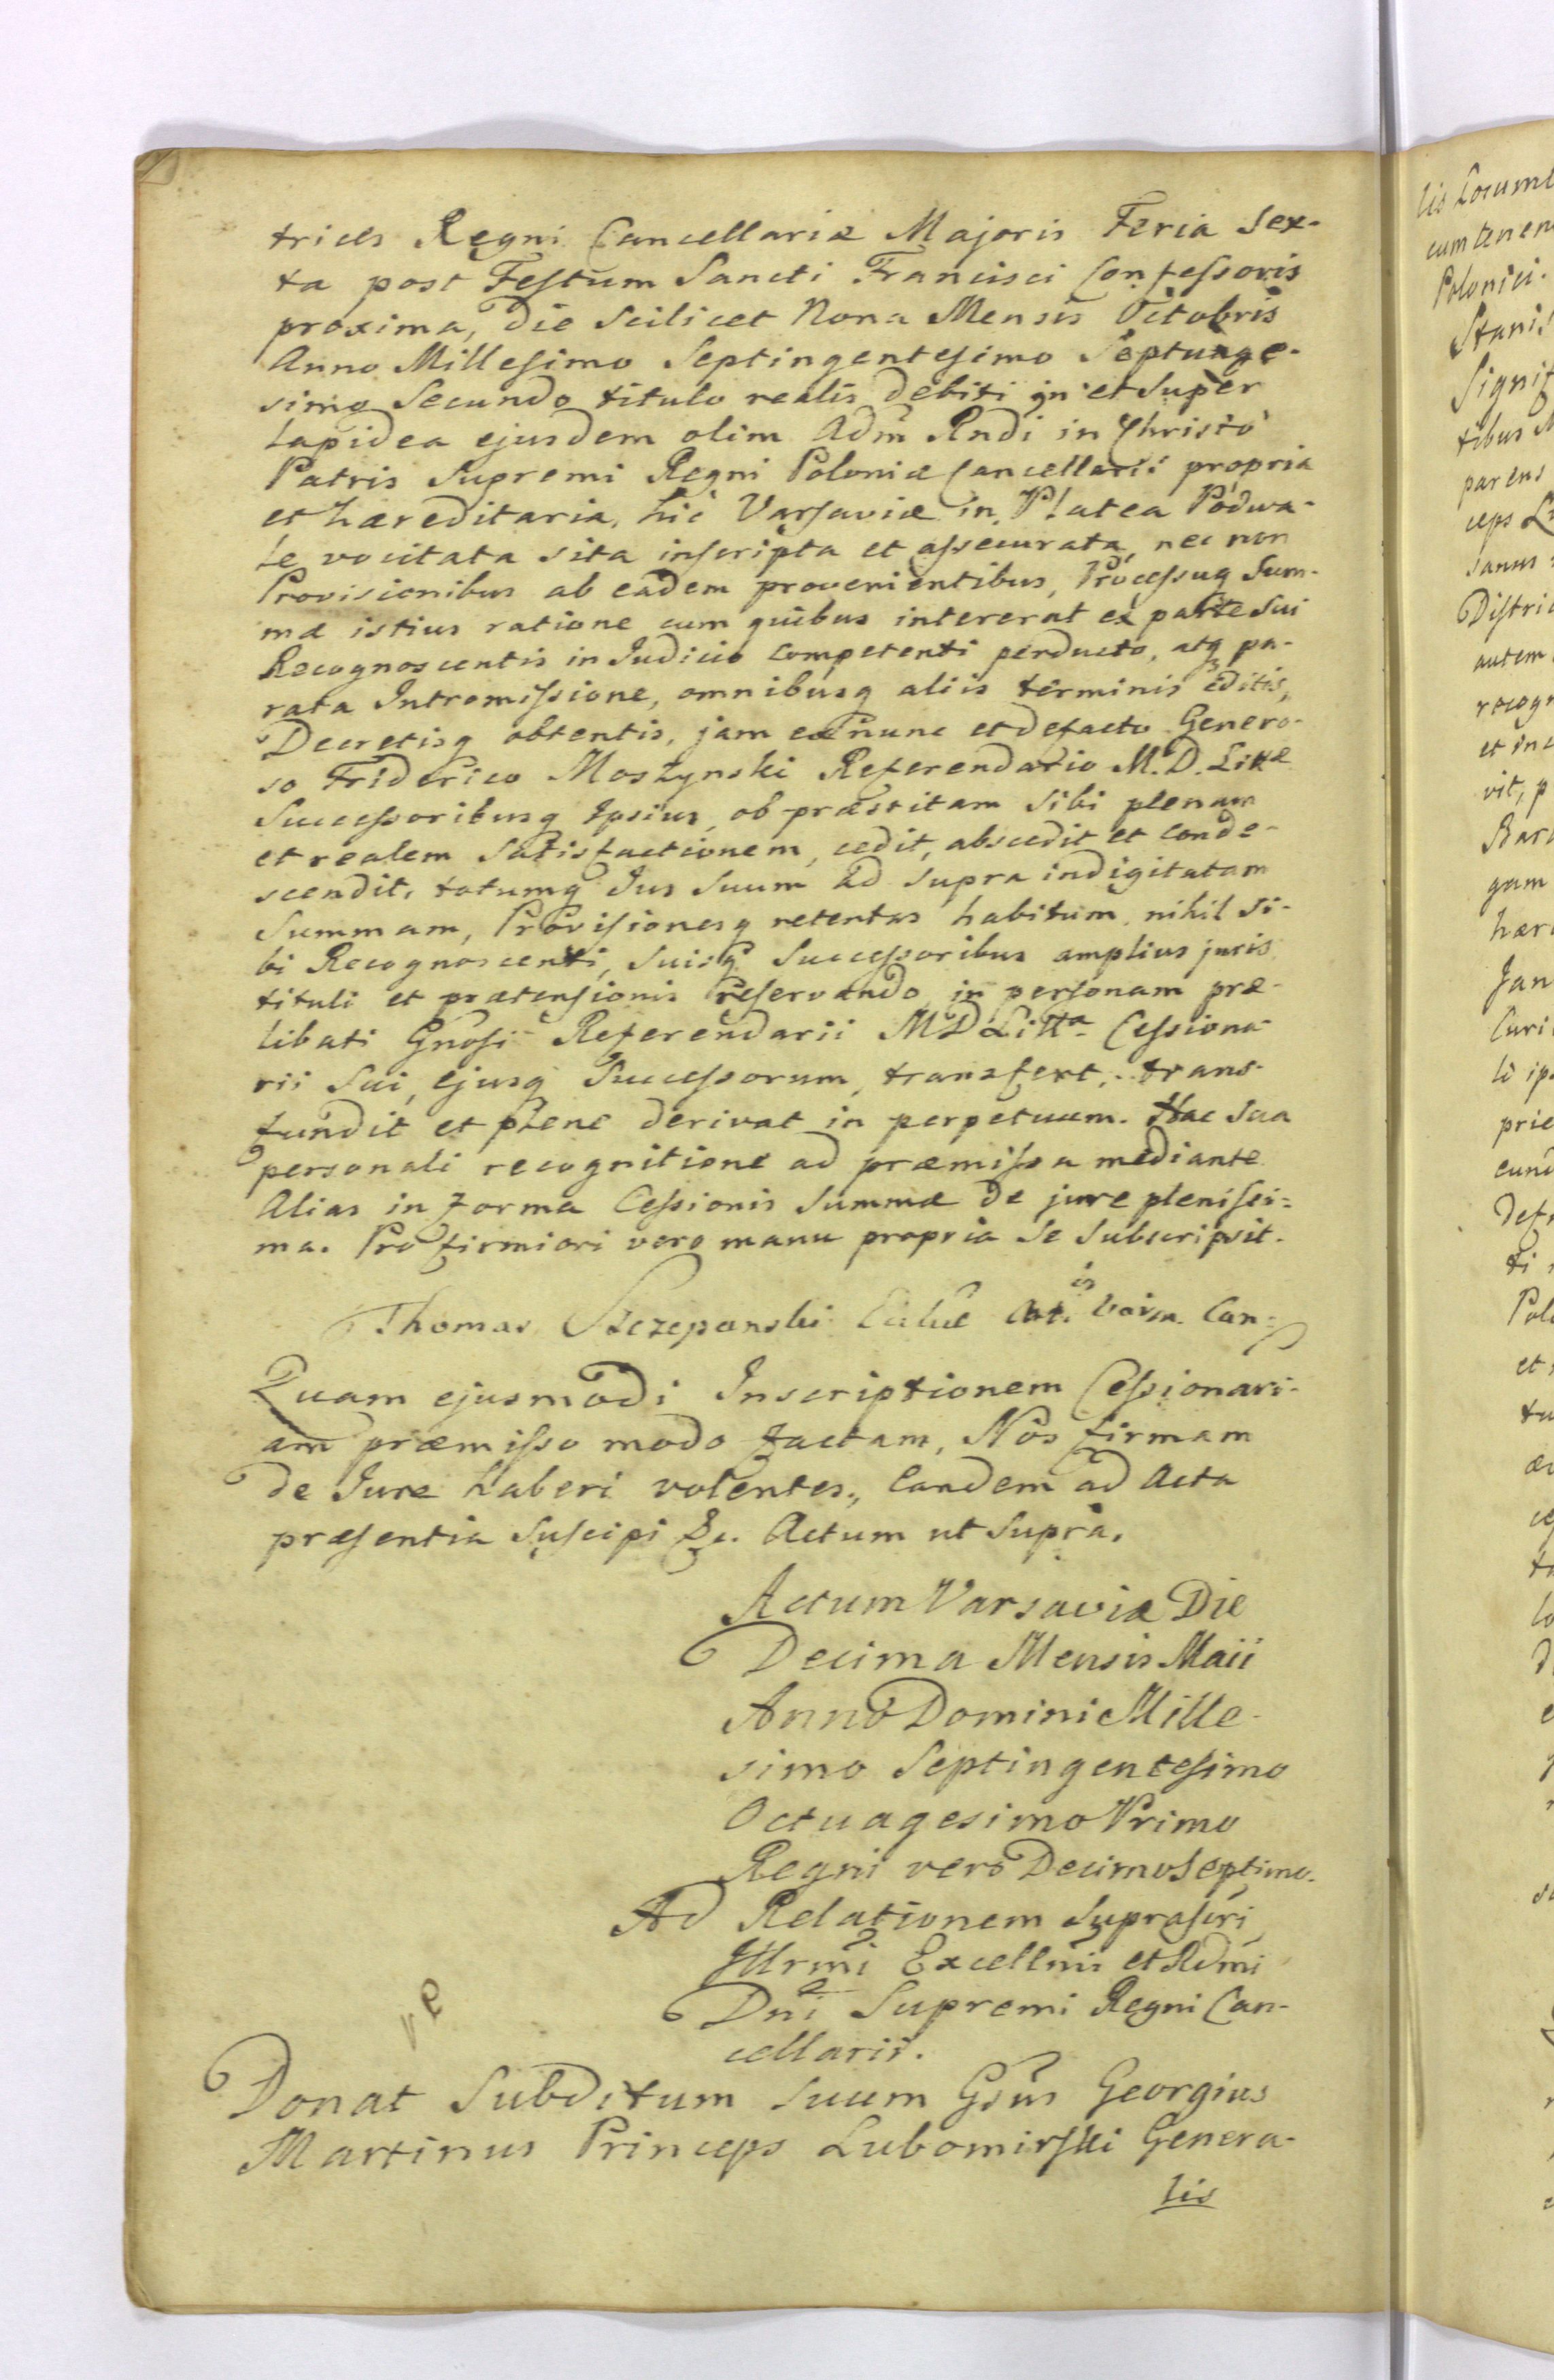 trices Regni Cancellariæ Majoris Feria Sex-
ta post Festum Sancti Francisci Confessoris
proxima, Die Scilicet Nona Mensis Octobris
Anno Millesimo Septingentesimo Septuage-
simo Secundo titulo realis debiti in et Super
Lapidea ejusdem olim Adm̃ Rndi in Christo
Patris Supremi Regni Poloniæ Cancellarii propria
et hæreditaria, hic Varsaviæ in Platea Podwa-
le vocitata sita inscripta et assecurata, nec non
Provisionibus ab eadem provenientibus, Processuq Sum-
mæ istius ratione cum quibus intererat ex parte Sui
Recognoscentis in Judicio Competenti perducto, atq pa-
rata Intromissione, omnibusq aliis terminis editis,
Decretisq obtentis, jam ex nunc et defacto Genero-
so Friderico Moszynski Referendario M. D. Littæ
Successoribusq Ipsius, ob præstitam Sibi plenam
et realem Satisfactionem, cedit, abscedit et conde-
scendit, totumq Jus Suum ad Supra indigitatam
Summam, Provisionesq retentas habitum, nihil Si-
bi Recognoscenti, Suisq Successoribus amplius juris
tituli et prætensionis reservando, in personam præ-
libati Gnosi Referendarii MD Littæ Cessiona-
rii Sui, ejusq Successorum, transfert, trans-
fundit et plene derivat in perpetuum. Hac Sua
personali recognitione ad præmissa mediante
Alias in forma Cessionis Summæ de jure plenissi=
ma. Pro firmiori vero manu propria Se Subscripsit.
Thomas Szczepanski Can:
Quam ejusmodi Inscriptionem Cessionari-
am præmisso modo factam, Nos firmam
de Jure haberi volentes, Eandem ad Acta
præsentia Suscipi &c. Actum ut Supra.
Actum Varsaviæ Die
Decima Mensis Maii
Anno Domini Mille-
simo Septingentesimo
Octuagesimo Primo
Regni vero Decimo Septimo.
Ad Relationem Suprascri
Illrmi Excellmi et Rdmi
Dni Supremi Regni Can-
cellarii.
Donat Subditum Suum Gsus Georgius
Martinus Princeps Lubomirski Genera-
lis